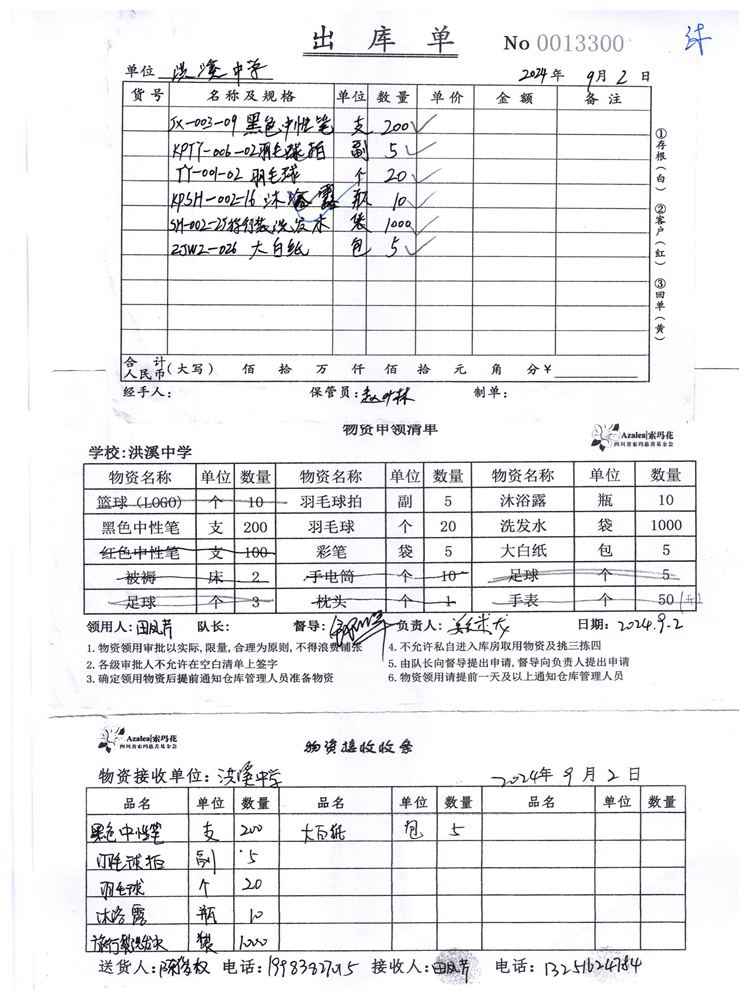 出库单 No 0013300
单位 洪溪中学 2024年9月2日
货号 名称及规格 单位 数量 单价 金额 备注
JX-003-09 黑色中性笔 支 200
KPTY-006-02羽毛球拍 副 5
TY-001-02 羽毛球 个 20
KPSH-002-16 沐浴露 瓶 10
SH-002-25旅行装洗发水 袋 1000
ZJWZ-026 大白纸 包 5
①存根(白) ②客户(红) ③回单(黄)
合计人民币(大写) 佰 拾 万 仟 佰 拾 元 角 分¥
经手人: 保管员: 制单:
物资申领清单
Azalea|索玛花
四川省索玛慈善基金会
学校:洪溪中学
物资名称 单位 数量 物资名称 单位 数量 物资名称 单位 数量
篮球(LOGO) 个 10 羽毛球拍 副 5 沐浴露 瓶 10
黑色中性笔 支 200 羽毛球 个 20 洗发水 袋 1000
红色中性笔 支 100 彩笔 袋 5 大白纸 包 5
被褥 床 2 手电筒 个 10 足球 个 5
足球 个 3 枕头 个 1 手表 个 50
领用人:田凤芹 队长: 督导: 负责人: 日期:2024.9.2
1.物资领用审批以实际,限量,合理为原则,不得浪费铺张 4.不允许私自进入库房取用物资及挑三拣四
2.各级审批人不允许在空白清单上签字 5.由队长向督导提出申请,督导向负责人提出申请
3.确定领用物资后提前通知仓库管理人员准备物资 6.物资领用请提前一天及以上通知仓库管理人员
Azalea|索玛花
四川省索玛慈善基金会
物资接收收条
物资接收单位:洪溪中学 2024年9月2日
品名 单位 数量 品名 单位 数量 品名 单位 数量
黑色中性笔 支 200 大白纸 包 5
羽毛球拍 副 5
羽毛球 个 20
沐浴露 瓶 10
旅行装洗发水 袋 1000
送货人: 电话:19983327015 接收人:田凤芹 电话:13251624784